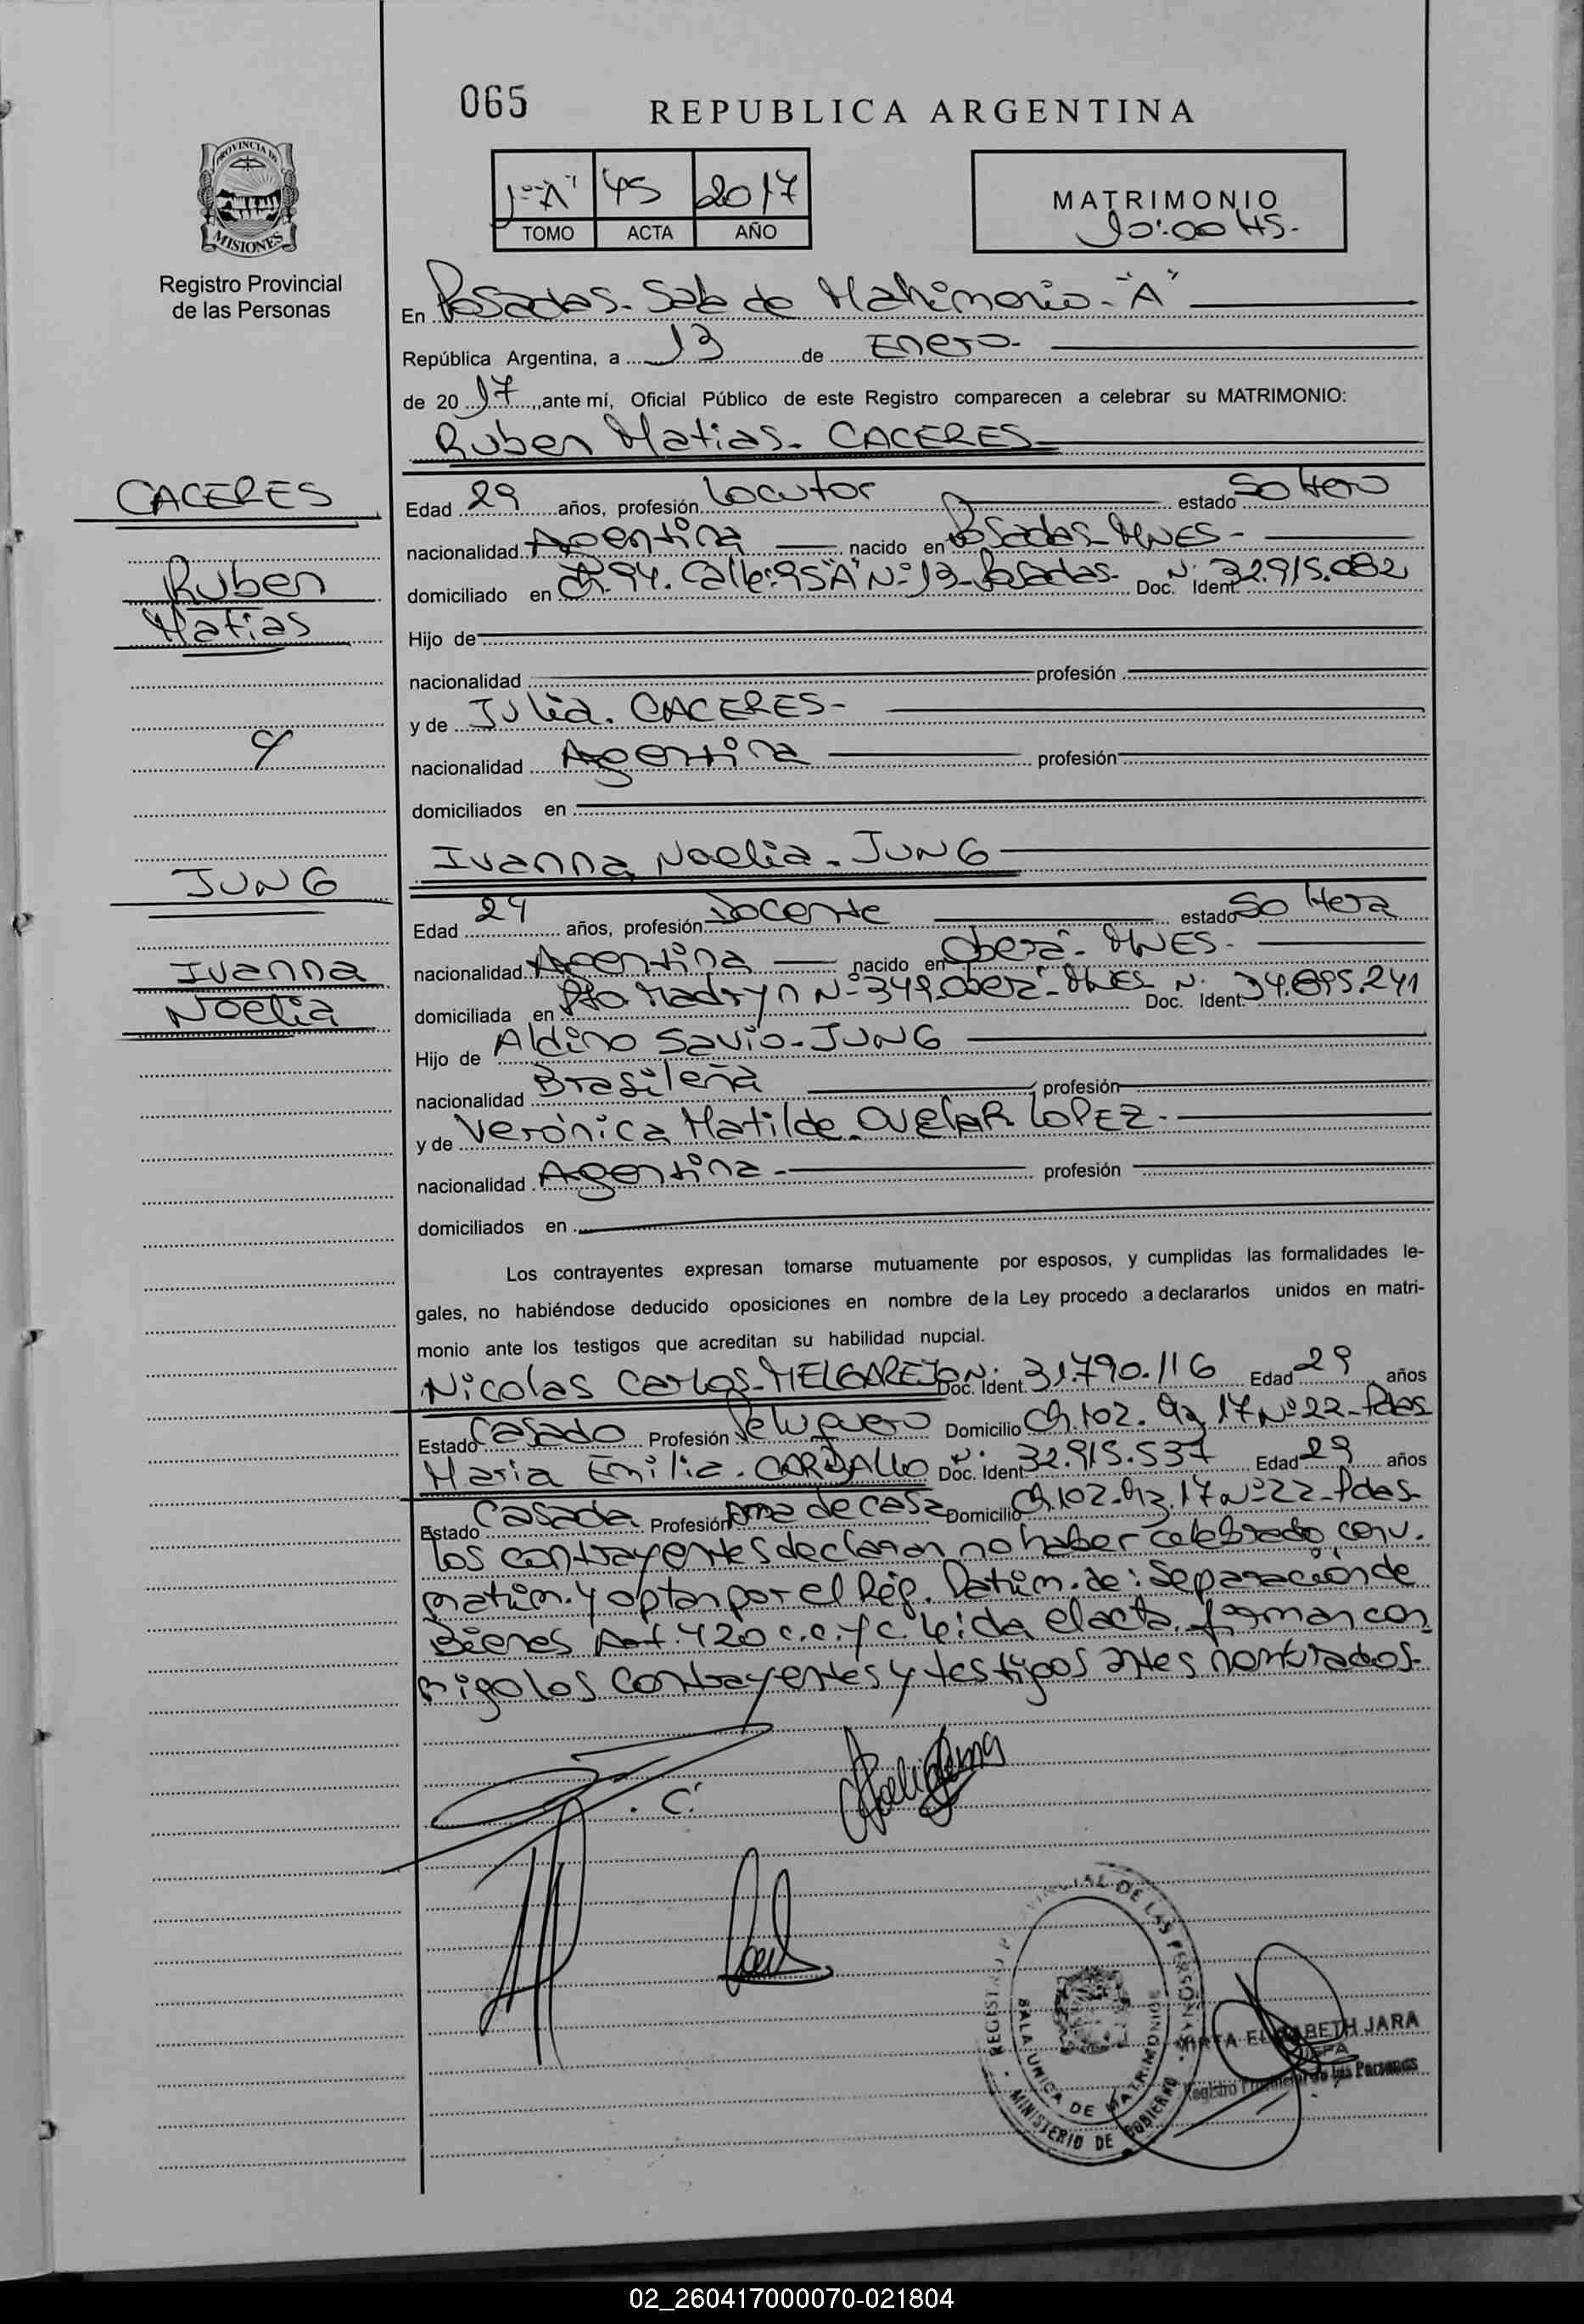 065
REPUBLICA ARGENTINA
PROVINCIA DE
MISIONES
Registro Provincial
de las Personas
1º "A" 45 2017
TOMO ACTA AÑO
MATRIMONIO
10:00 HS.
En Posadas - Sala de Matrimonio - "A"
República Argentina, a 13 de Enero
de 2017, ante mí, Oficial Público de este Registro comparecen a celebrar su MATRIMONIO:
Ruben Matias CACERES
CACERES
Ruben
Matias
y
JUNG
Ivanna
Noelia
Edad 29 años, profesión Locutor estado Soltero
nacionalidad Argentina nacido en Posadas - MNES -
domiciliado en Ch. 94. Calle: 95 "A" Nº 13 - Posadas. Doc. Ident. N: 32.915.082
Hijo de
nacionalidad profesión
y de Julia. CACERES -
nacionalidad Argentina profesión
domiciliados en
Ivanna Noelia - JUNG
Edad 27 años, profesión Docente estado Soltera
nacionalidad Argentina nacido en Oberá - MNES -
domiciliada en Pto Madryn Nº 349 - Oberá - MNES Doc. Ident. N: 34.895.241
Hijo de Aldino Savio - JUNG
nacionalidad Brasileña profesión
y de Verónica Matilde OVELAR LOPEZ -
nacionalidad Argentina - profesión
domiciliados en
Los contrayentes expresan tomarse mutuamente por esposos, y cumplidas las formalidades le-
gales, no habiéndose deducido oposiciones en nombre de la Ley procedo a declararlos unidos en matri-
monio ante los testigos que acreditan su habilidad nupcial.
Nicolas Carlos - MELGAREJO Doc. Ident. N: 31.790.116 Edad 29 años
Estado Casado Profesión Peluquero Domicilio Ch. 102. Mz 17 Nº 22 - Pdas
Maria Emilia - CARBALLO Doc. Ident. N: 32.915.537 Edad 29 años
Estado Casada Profesión Ama de casa Domicilio Ch. 102. Mz. 17 Nº 22 - Pdas -
Los contrayentes declaran no haber celebrado conv.
matrim. y optan por el Rég. Patrim. de: Separación de
Bienes Art. 420 c.c. y c. Leida el acta, firman con
migo los contrayentes y testigos antes nombrados.
REGISTRO PROVINCIAL DE LAS PERSONAS
SALA UNICA DE MATRIMONIOS
MINISTERIO DE GOBIERNO
MIRTA ELIZABETH JARA
Registro Provincial de las Personas
02_260417000070-021804